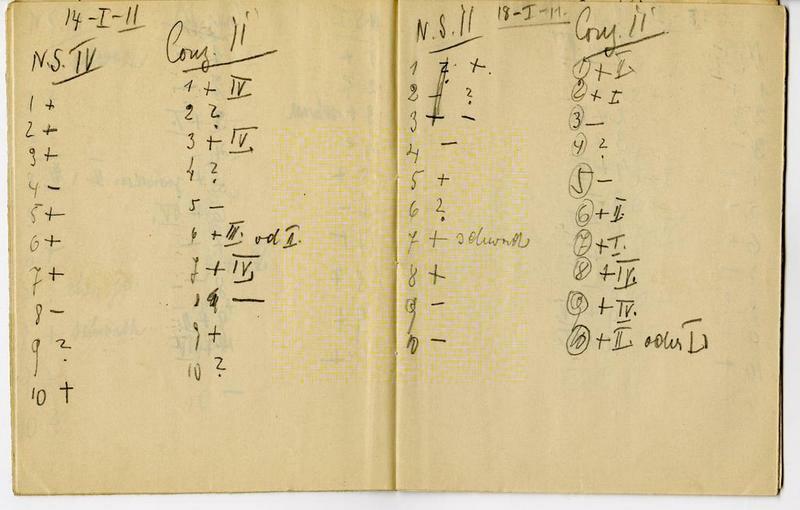 14-I-11
N.S. IV
1 +
2 +
3 +
4 -
5 +
6 +
7 +
8 -
9 ?
10 +
Conj. II
1 + IV
2 ?
3 + IV.
4 ?
5 -
6 + III. od I.
7 + IV
8 -
9 +
10 ?
18-I-11.
N.S. II
1 +.
2 ?
3 -
4 -
5 +
6 ?
7 + schwach
8 +
9 -
10 -
Conj. II
1 + I.
2 + I
3 -
4 ?
5 -
6 + II.
7 + I.
8 + IV.
9 + IV.
10 + II oder I.